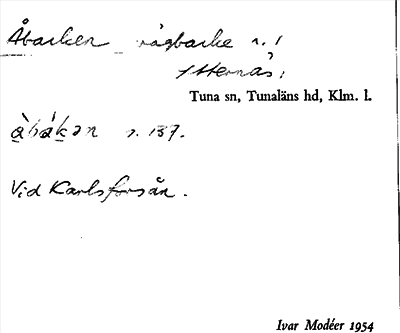 Åbacken vägbacke n. 1
Ytternäs,
Tuna sn, Tunaläns hd, Klm. l.
s. 137.
Vid Karlsforsån.
Ivar Modéer 1954